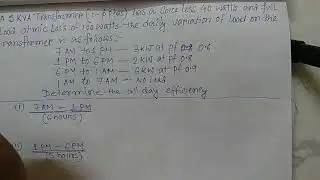 A 5 KVA Transformer (1-φ phase) has a core loss 40 watts and full
Load ohmic loss of 100 watts the daily variation of load on the
Transformer is as follows:-
7 AM to 1 PM — 3KW at pf 0.8
1 PM to 6 PM — 2KW at pf 0.8
6 PM to 1 AM — 6KW at pf 0.9
1 AM to 7 AM — No load
Determine the all day efficiency
(i) 7 AM — 1 PM
(6 hours)
(ii) 1 PM — 6 PM
(5 hours)